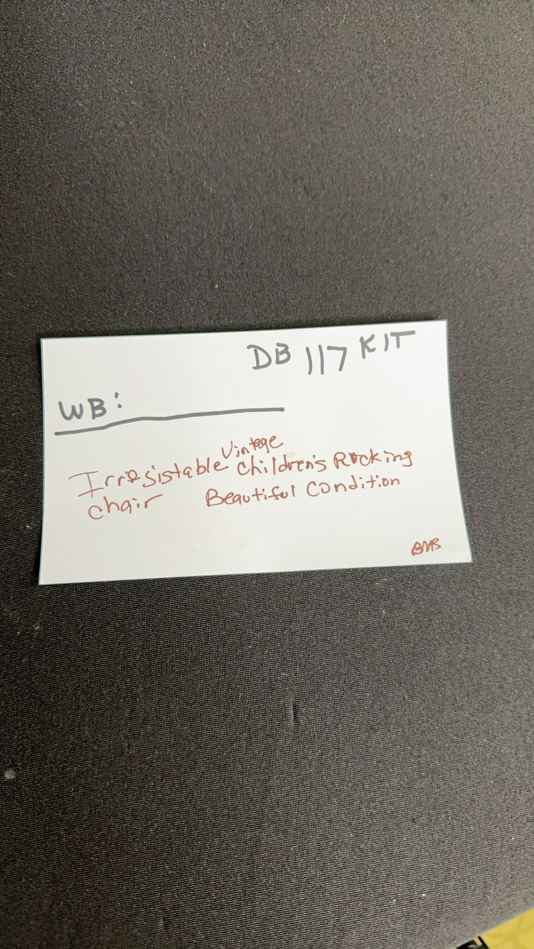 DB 117 KIT
WB:
Vintage
Irresistable Children's Rocking
Chair Beautiful Condition